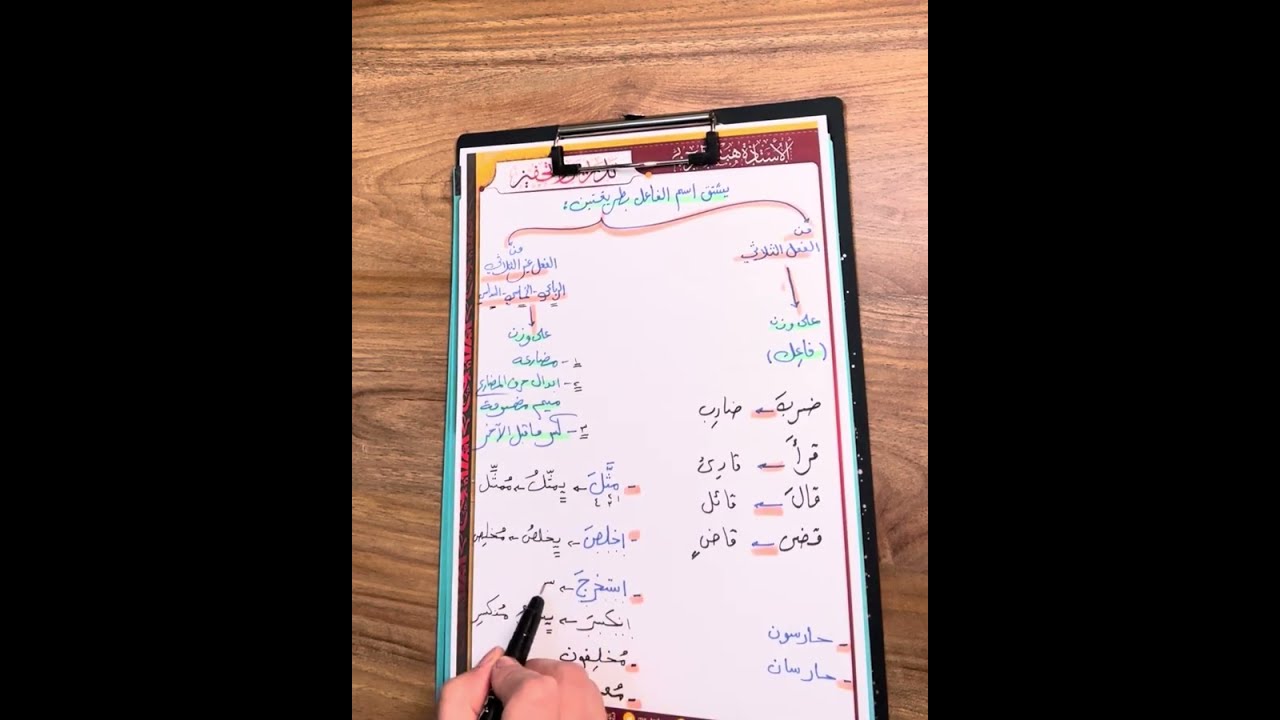 الأستاذة
يشتق اسم الفاعل بطريقتين:
من
الفعل الثلاثي
على وزن
(فاعِل)
ضربَ ← ضارِب
قرأَ ← قارِئ
قالَ ← قائل
قضى ← قاضٍ
- حارسون
- حارسان
من
الفعل غير الثلاثي
الرباعي - الخماسي - السداسي
على وزن
١- مضارعه
٢- ابدال حرف المضارع
ميم مضمومة
٣- كسر ما قبل الآخر
- مثَّلَ ← يمثّلُ ← مُمثِّل
١ ٢ ٣ ٤
- اخلصَ ← يخلصُ ← مُخلِص
- استخرجَ ←
انكسرَ ← مُنكسِر
- مُخلِفون